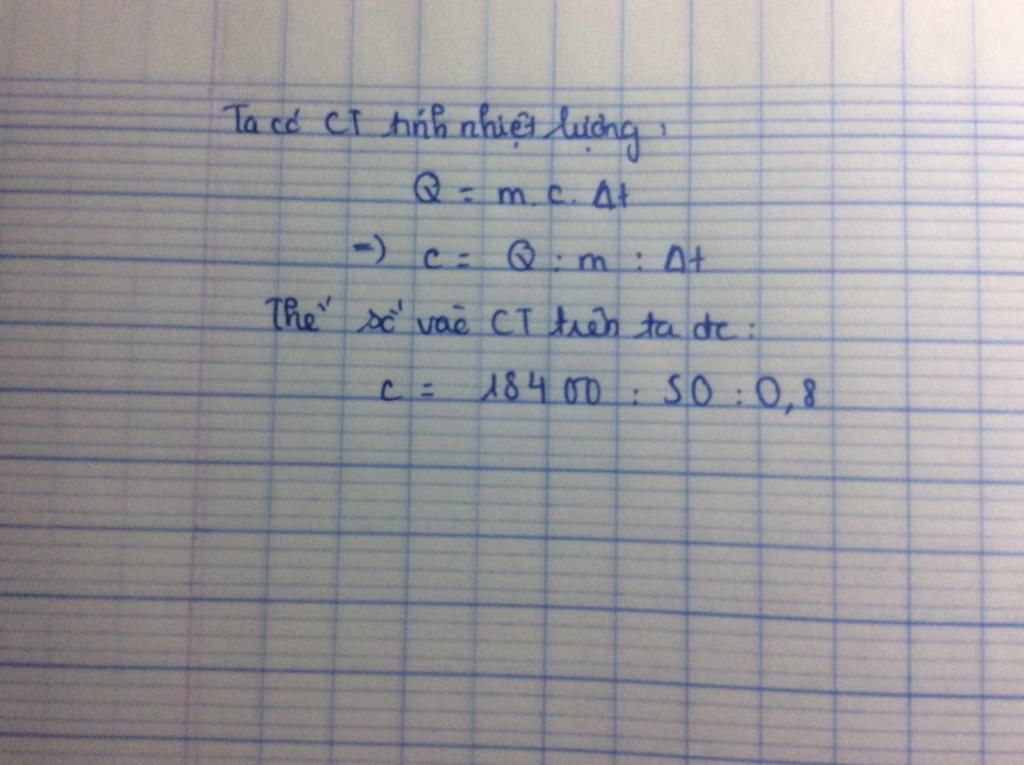 Ta có CT tính nhiệt lượng:
Q = m.c.Δt
=> c = Q : m : Δt
Thế số vào CT trên ta đc:
c = 18400 : 50 : 0,8